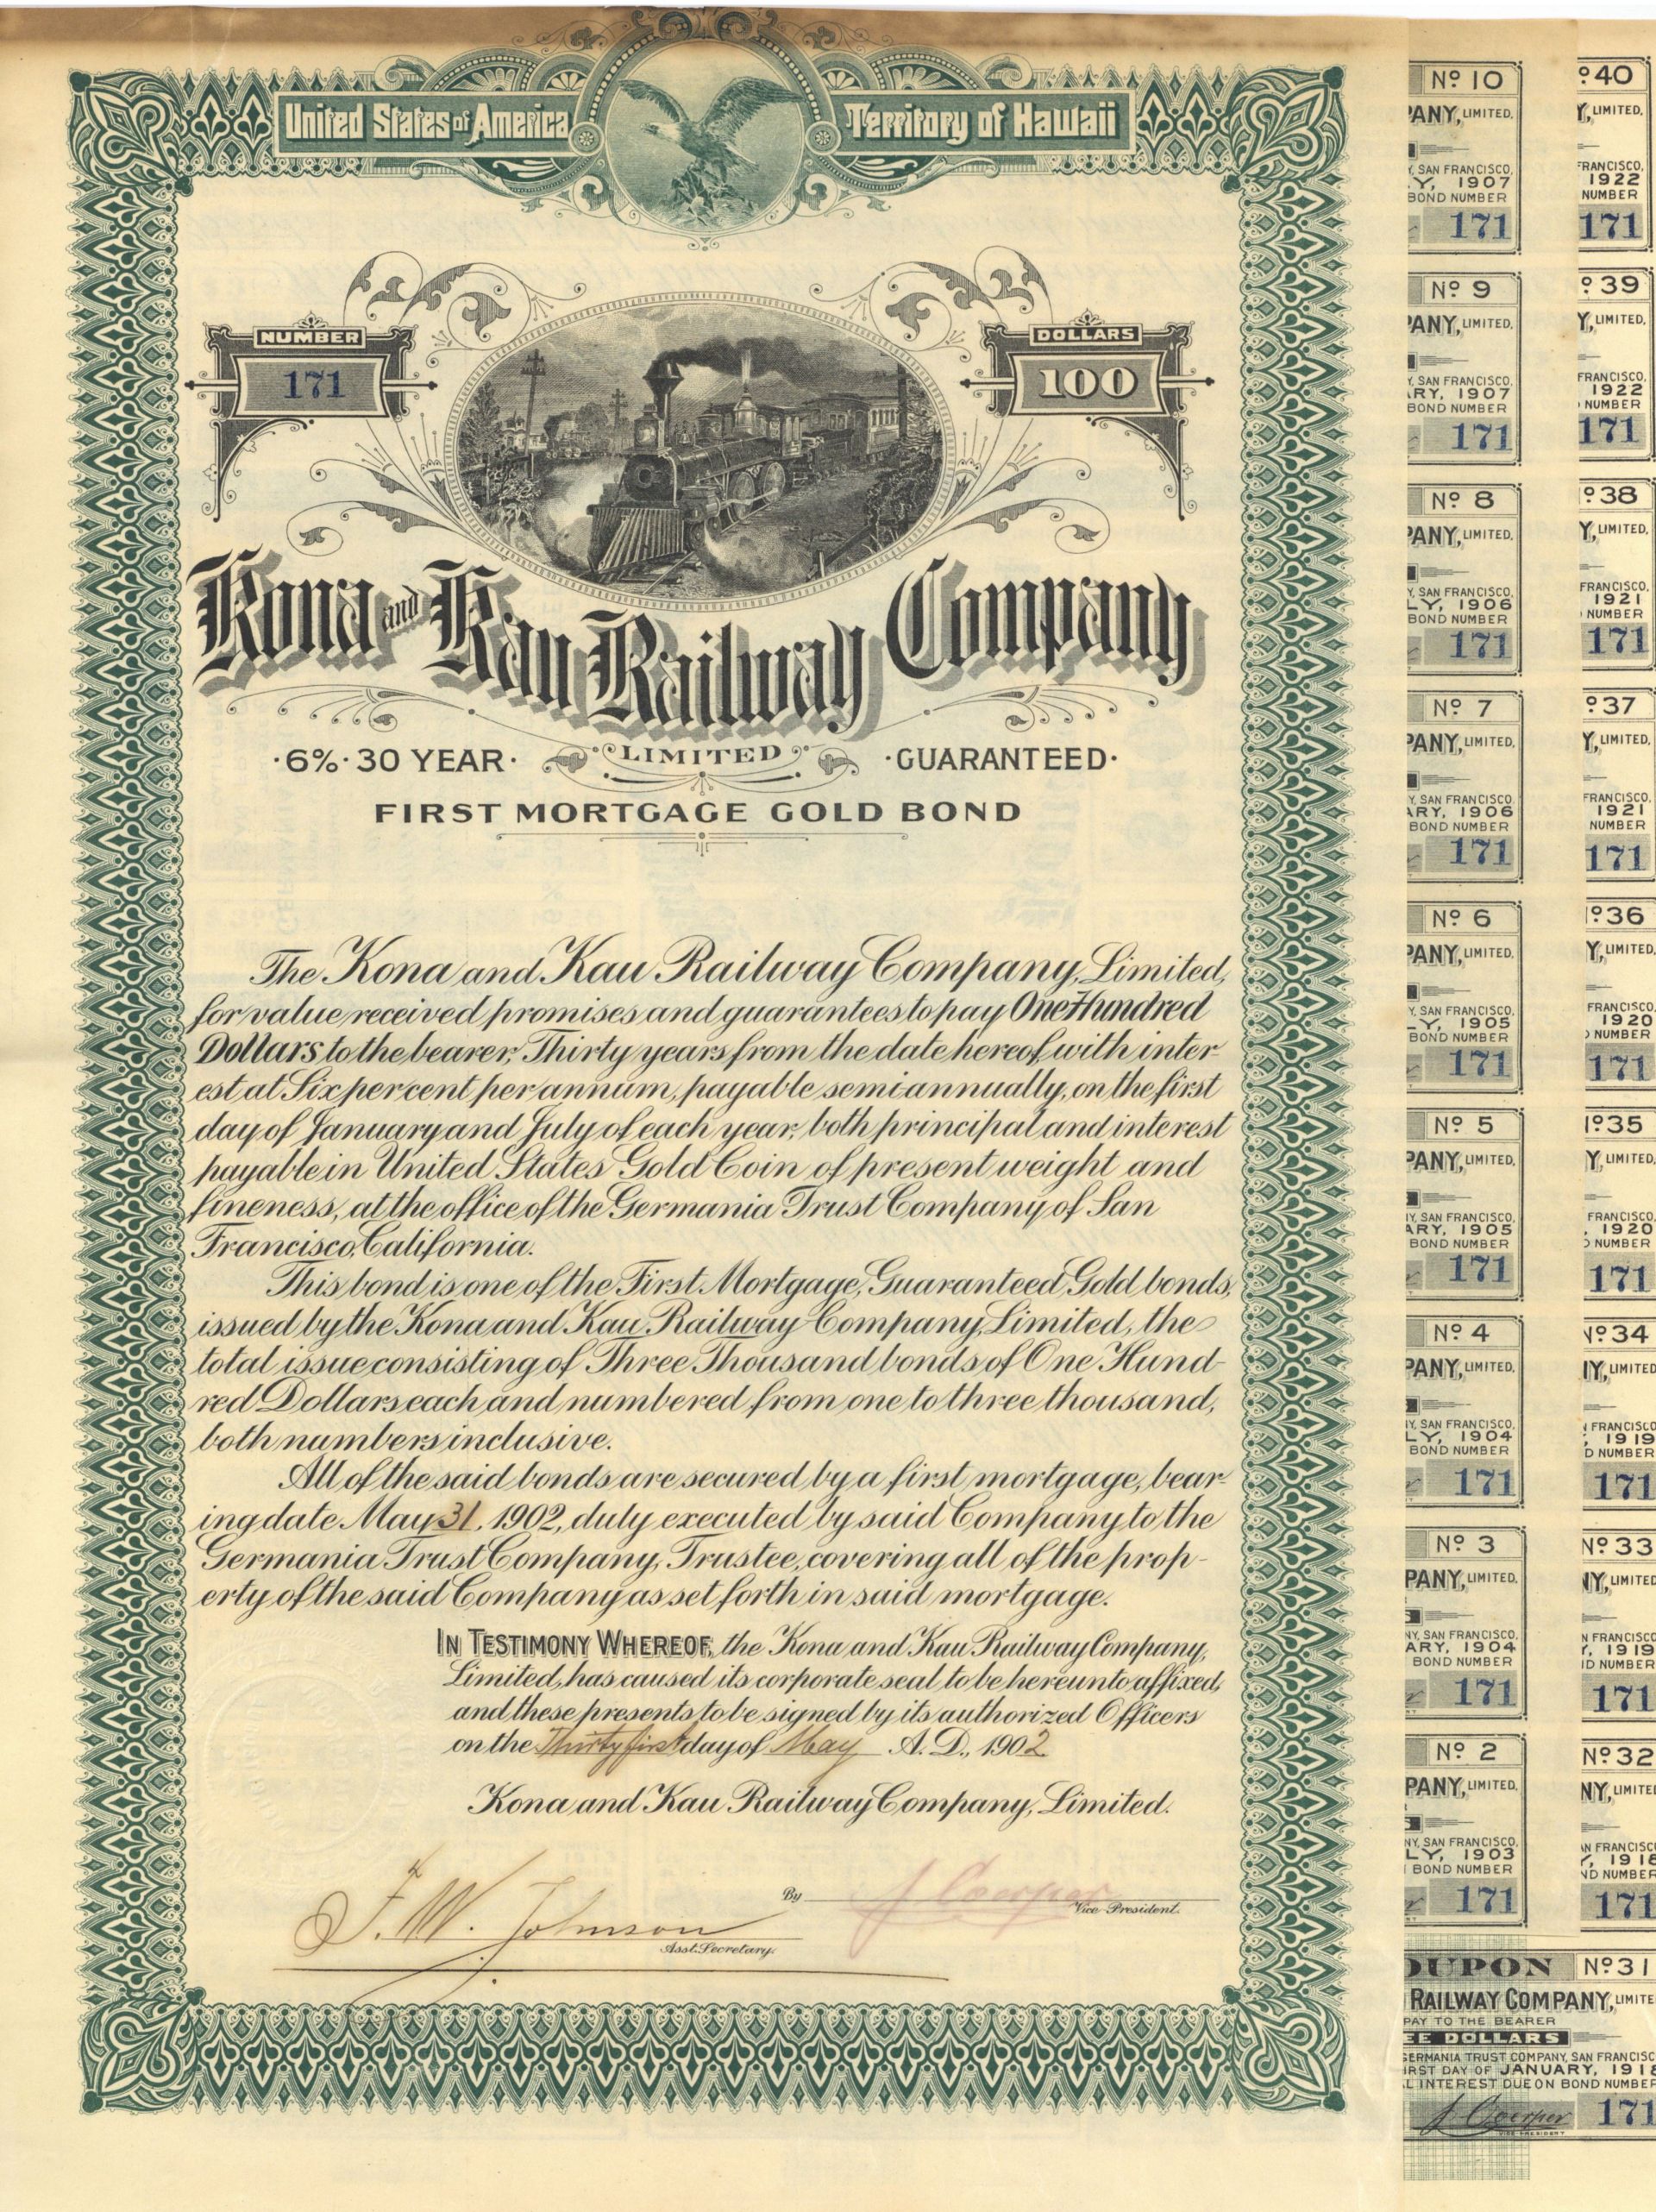 United States of America
Territory of Hawaii
NUMBER
171
DOLLARS
100
Kona and Kau Railway Company
·6%·30 YEAR· LIMITED ·GUARANTEED·
FIRST MORTGAGE GOLD BOND
The Kona and Kau Railway Company, Limited,
for value received promises and guarantees to pay One Hundred
Dollars to the bearer, Thirty years from the date hereof with inter-
est at Six per cent per annum, payable semi annually, on the first
day of January and July of each year, both principal and interest
payable in United States Gold Coin of present weight and
fineness, at the office of the Germania Trust Company of San
Francisco, California.
This bond is one of the First Mortgage, Guaranteed, Gold bonds,
issued by the Kona and Kau Railway Company, Limited, the
total issue consisting of Three Thousand bonds of One Hund-
red Dollars each and numbered from one to three thousand,
both numbers inclusive.
All of the said bonds are secured by a first mortgage, bear-
ing date May 31, 1902, duly executed by said Company to the
Germania Trust Company, Trustee, covering all of the prop-
erty of the said Company as set forth in said mortgage.
IN TESTIMONY WHEREOF, the Kona and Kau Railway Company,
Limited, has caused its corporate seal to be hereunto affixed,
and these presents to be signed by its authorized Officers
on the Thirty first day of May A. D., 1902
Kona and Kau Railway Company, Limited.
F. W. Johnson
Asst. Secretary.
By J Coerper
Vice-President.
Nº 10
PANY, LIMITED.
Y, SAN FRANCISCO,
Y, 1907
BOND NUMBER
171
Nº 9
PANY, LIMITED.
Y, SAN FRANCISCO,
ARY, 1907
BOND NUMBER
171
Nº 8
PANY, LIMITED.
Y, SAN FRANCISCO,
LY, 1906
BOND NUMBER
171
Nº 7
PANY, LIMITED.
Y, SAN FRANCISCO,
ARY, 1906
BOND NUMBER
171
Nº 6
PANY, LIMITED.
Y, SAN FRANCISCO,
LY, 1905
BOND NUMBER
171
Nº 5
PANY, LIMITED.
NY, SAN FRANCISCO,
ARY, 1905
BOND NUMBER
171
Nº 4
PANY, LIMITED.
NY, SAN FRANCISCO.
LY, 1904
BOND NUMBER
171
Nº 3
PANY, LIMITED.
NY, SAN FRANCISCO,
ARY, 1904
BOND NUMBER
171
Nº 2
PANY, LIMITED.
NY, SAN FRANCISCO,
LY, 1903
BOND NUMBER
171
º 40
Y, LIMITED.
FRANCISCO,
1922
NUMBER
171
º 39
Y, LIMITED.
FRANCISCO,
1922
NUMBER
171
º 38
Y, LIMITED.
FRANCISCO,
1921
NUMBER
171
º 37
Y, LIMITED.
FRANCISCO,
1921
NUMBER
171
º 36
Y, LIMITED.
FRANCISCO,
1920
NUMBER
171
º 35
Y, LIMITED.
FRANCISCO,
1920
NUMBER
171
Nº 34
NY, LIMITED
FRANCISCO
1919
D NUMBER
171
Nº 33
NY, LIMITED
N FRANCISCO
Y, 1919
ND NUMBER
171
Nº 32
NY, LIMITE
AN FRANCISC
Y, 1918
ND NUMBER
171
OUPON Nº 31
RAILWAY COMPANY, LIMITE
PAY TO THE BEARER
EE DOLLARS
GERMANIA TRUST COMPANY, SAN FRANCISC
IRST DAY OF JANUARY, 1918
L INTEREST DUE ON BOND NUMBER
J Coerper 171
VICE PRESIDENT